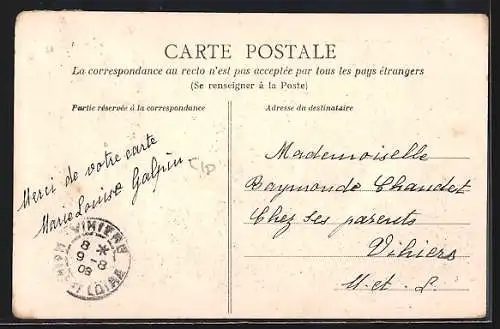 CARTE POSTALE
La correspondance au recto n'est pas acceptée par tous les pays étrangers
(Se renseigner à la Poste)
Partie réservée à la correspondance
Adresse du destinataire
Merci de votre carte
Marie Louise Galpin
Mademoiselle
Raymonde Chaudet
Chez ses parents
Vihiers
M.-et-L.
VIHIERS
8 *
9 -8
08
LOIRE